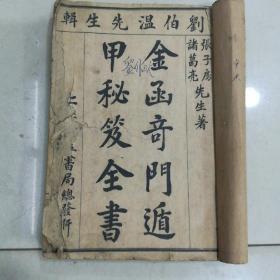 劉伯溫先生輯
張子房
諸葛亮
先生著
金函奇門遁
甲秘笈全書
上海
書局總發行